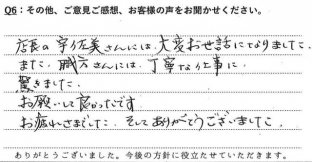 Q6：その他、ご意見ご感想、お客様の声をお聞かせください。
店長の宇佐美さんには、大変お世話になりました。
また、職方さんには、丁寧な仕事に
驚きました。
お願いして良かったです。
お疲れさまでした。そしてありがとうございました。
ありがとうございました。今後の方針に役立たせていただきます。